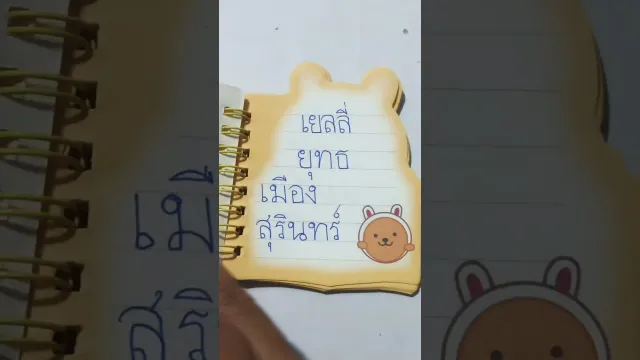 เยลลี่
ยุทธ
เมือง
สุรินทร์